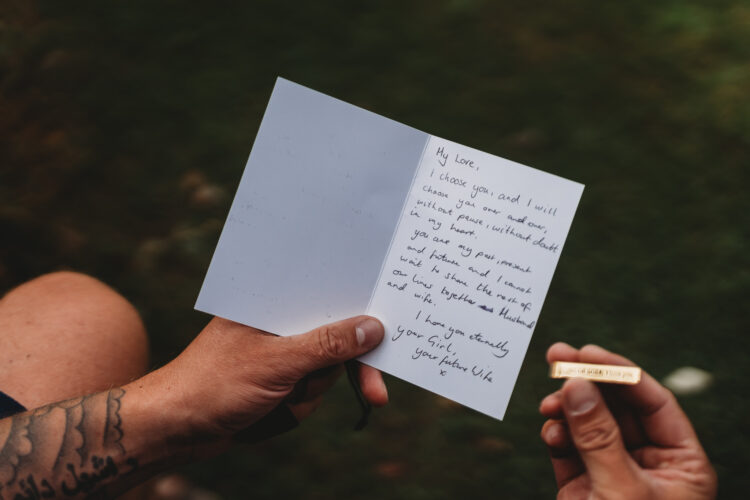 My Love,
I choose you, and I will
choose you over and over,
without pause, without doubt
in my heart.
you are my past, present
and future and I cannot
wait to share the rest of
our lines together as Husband
and wife.
I hove you eternally
your Girl,
your future Wife
x